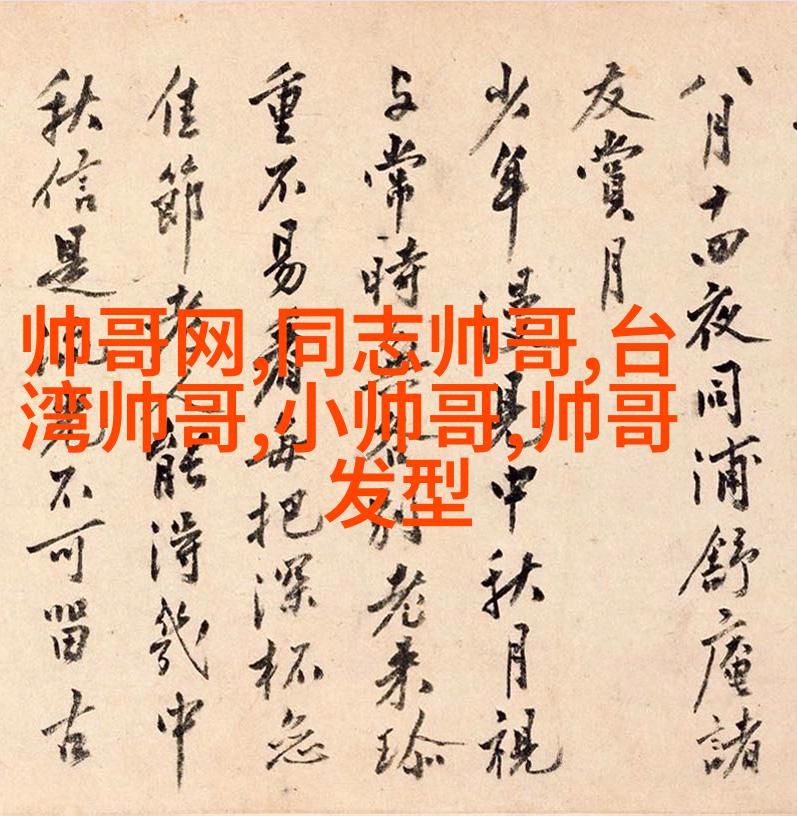 帅哥网,同志帅哥,台
湾帅哥,小帅哥,帅哥
发型
八月十四夜同浦舒庵諸
友賞月
少年漫見中秋月視
与常時別老来珎
重不易看每把深杯
佳節老人能得幾中
秋信是流光不可留古